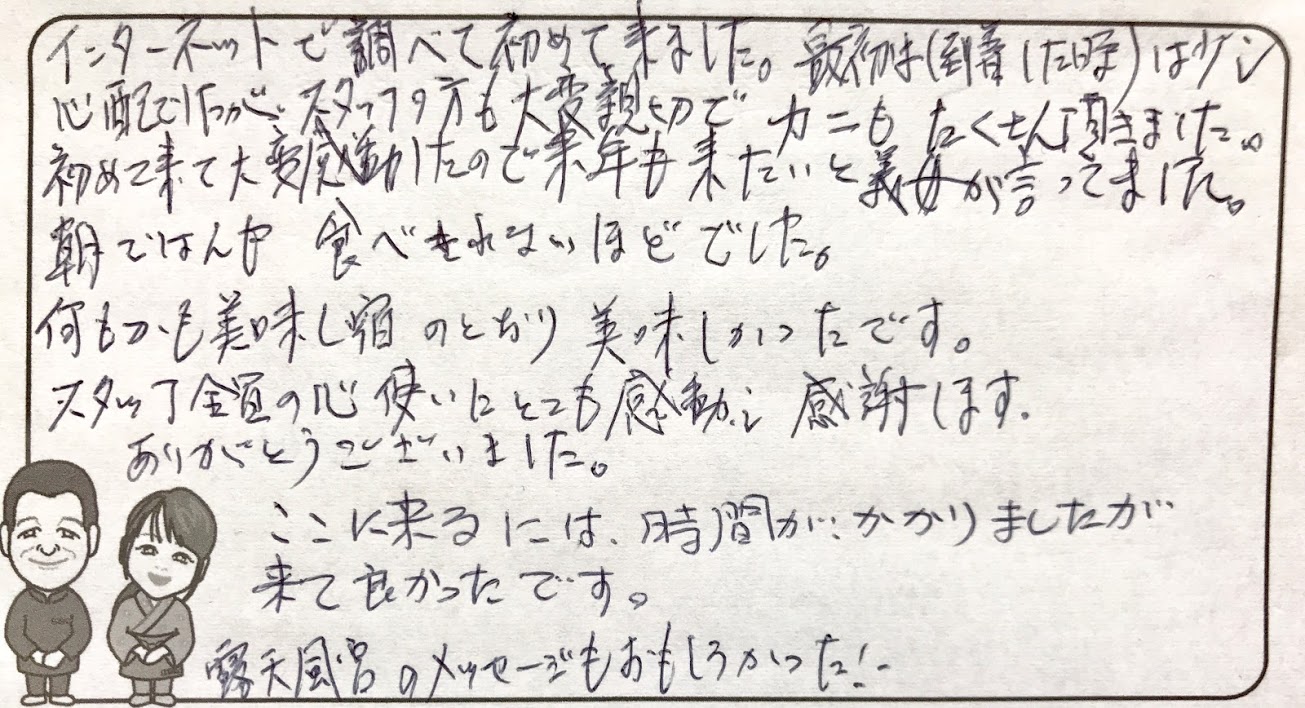 インターネットで調べて初めて来ました。最初は(到着した時)は少し
心配でしたが、スタッフの方も大変親切で カニもたくさん頂きました。
初めて来て大変感動したので来年も来たいと義母が言ってました。
朝ごはんも 食べきれないほどでした。
何もかも美味し宿のとおり 美味しかったです。
スタッフ全員の心使いにとても感動し 感謝します。
ありがとうございました。
ここに来るには、時間がかかりましたが
来て良かったです。
露天風呂のメッセージもおもしろかった!